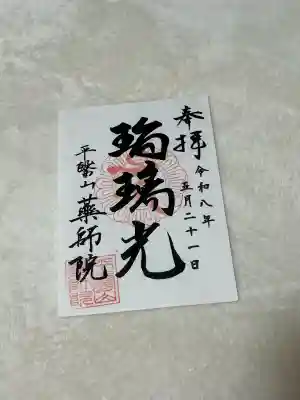 奉拝
令和八年
五月二十一日
瑠璃光
薬師院